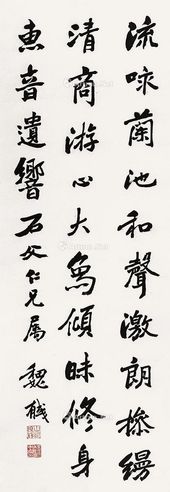 流咏蘭池和聲激朗操縵
清商游心大鳥傾昧修身
惠音遺響石父仁兄屬 魏戫